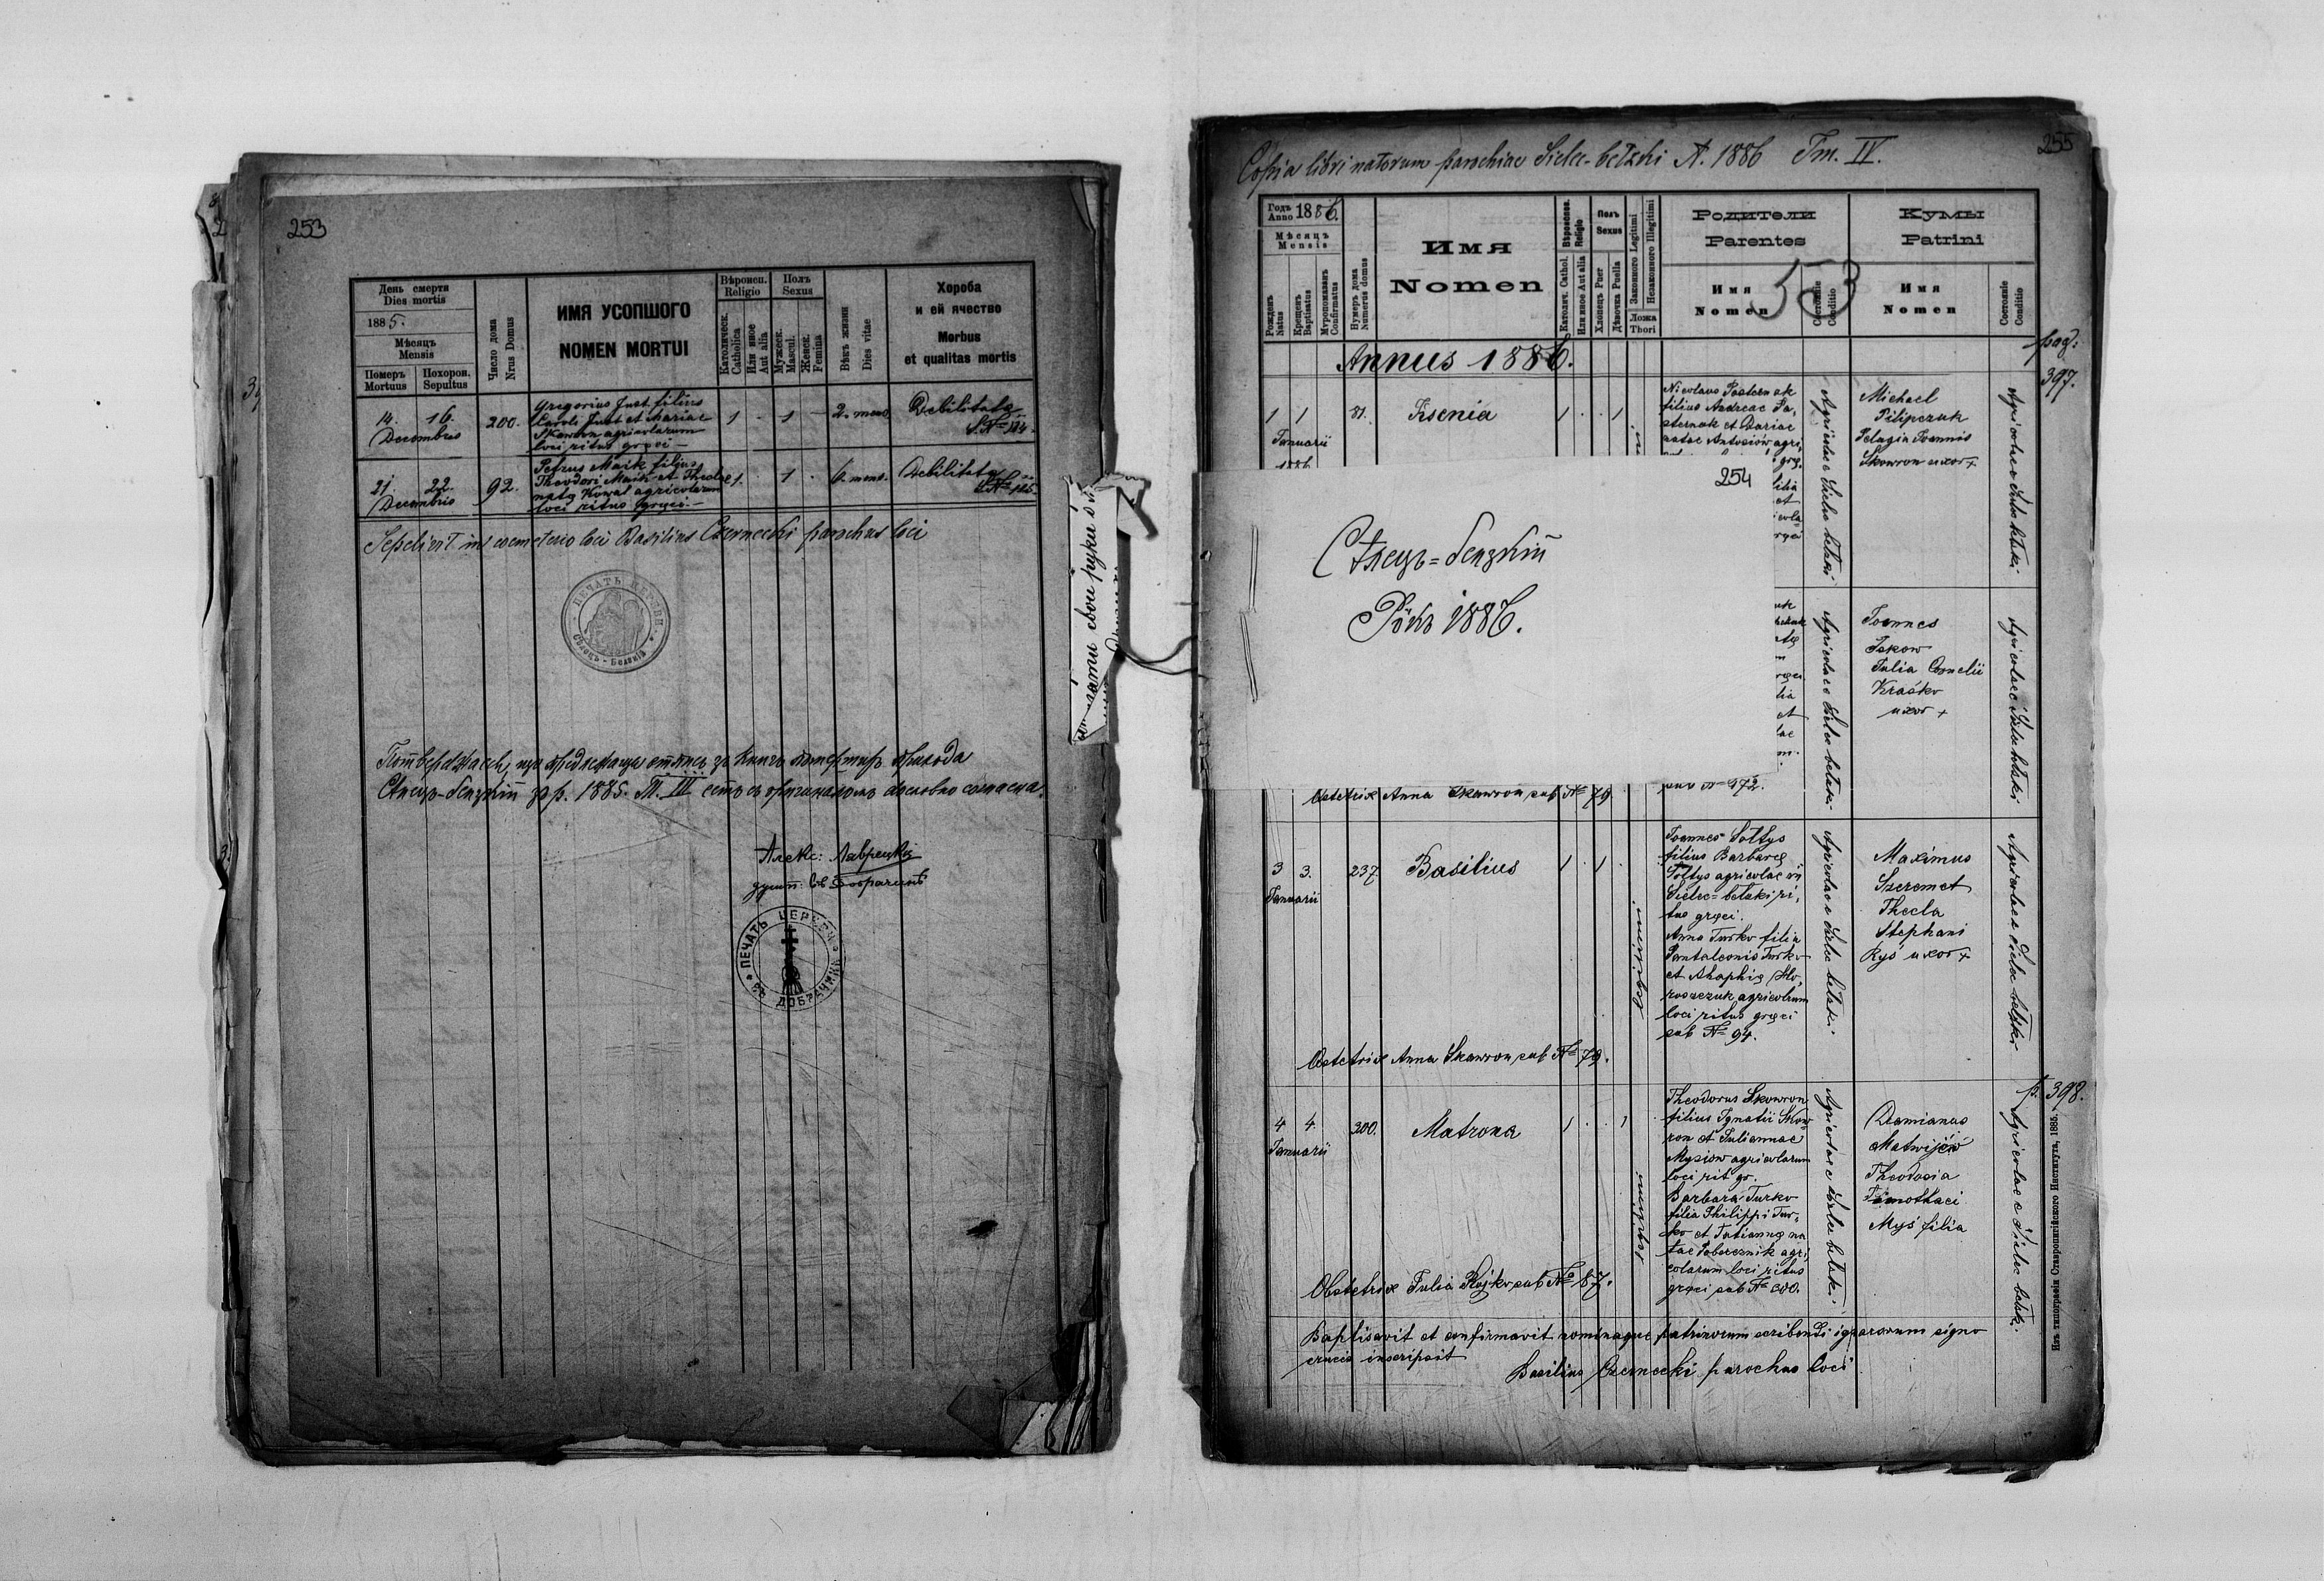 253
День смерти
Dies mortis
1885.
Мѣсяцъ
Mensis
Померъ
Mortuus
Похорон.
Sepultus
Число дома
Nrus Domus
ИМЯ УСОПШОГО
NOMEN MORTUI
Вѣроисп.
Religio
Католическ.
Catholica
Или иное
Aut alia
Полъ
Sexus
Мужеск.
Mascul.
Женск.
Femina
Вѣкъ жизни
Dies vitae
Хороба
и ей ячество
Morbus
et qualitas mortis
14. 16.
Decembris
200.
Gregorius Just filius
Caroli Just et Mariae
Skowron agricolarum
loci ritus graeci
1 1
2. mens.
Debilitate
21. 22.
Decembris
92.
Petrus Maik filius
Theodori Maik et Theclae
natae Kowal agricolarum
loci ritus graeci
1. 1
6. mens.
Debilitate
Sepelivit in coemeterio loci Basilius Czernecki parochus loci
Алекс: Лаврецкій
ПЕЧАТЬ ЦЕРКВИ
ВЪ ДОБРАЧИНѢ
свои руки
255
Copia libri natorum parochiae Sielec-bełzki A. 1886 Tm. IV.
Годъ
Anno 1886.
Мѣсяцъ
Mensis
Рожденъ
Natus
Крещенъ
Baptisatus
Мѵропомазанъ
Confirmatus
Нумеръ дома
Numerus domus
Имя
Nomen
Вѣроиспов.
Religio
Католич. Cathol.
Или иное Aut alia
Полъ
Sexus
Хлопецъ Puer
Дѣвочка Puella
Законного Legitimi
Незаконного Illegitimi
Ложа
Thori
Родители
Parentes
Имя
Nomen
Состояніе
Conditio
Кумы
Patrini
Имя
Nomen
Состояніе
Conditio
53
Annus 1886.
pag.
397.
1 1
Januarii
1886
81.
Ksenia
1 1
Nicolaus Pasternak
filius Andreae Pa-
sternak et Dariae
natae Antosiów agri-
Agricolae e Sielec bełzki
Michael
Pilipczuk
Pelagia Joannis
Skowron uxor +
Agricolae e Sielec bełzki
254
Сѣлецъ=белзкій
Рôкъ 1886.
Agricolae e Sielec bełzki
Joannes
Iskow
Julia Cornelii
Kraśko
uxor +
Agricolae e Sielec bełzki
Obstetrix Anna Skowron sub № 79.
3 3.
Januarii
237
Basilius
1 1
legitimi
Joannes Sołtys
filius Barbarae
Sołtys agricolae in
Sielec=bełzki ri-
tus graeci.
Anna Turko filia
Pantaleonis Turko
et Ahaphiae Ho-
roszczuk agricolarum
loci ritus graeci
sub № 94.
Agricolae e Sielec bełzki
Maximus
Szeremet
Thecla
Stephani
Ryś uxor +
Agricolae e Sielec bełzki
Obstetrix Anna Skowron sub № 79.
p. 398.
4 4.
Januarii
200.
Matrona
1 1
legitimi
Theodorus Skowron
filius Ignatii Skow-
ron et Juliannae
Mysiow agricolarum
loci rit gr.
Barbara Turko
filia Philippi Tur-
ko et Tatiannae na-
tae Pobereznik agri-
colarum loci ritus
graeci sub № 200.
Agricolae e Sielec bełzki
Damianus
Matwijów
Theodosia
Timothaei
Myś filia
Agricolae e Sielec bełzki
Obstetrix Julia Rojko sub № 87.
Baptisavit et confirmavit nominaque patrinorum scribendi ignarorum signo
crucis inscripsit
Basilius Czernecki parochus loci
Изъ типографіи Ставропигійского Института, 1885.